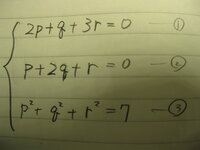 2p+q+3r=0 —①
p+2q+r=0 —②
p²+q²+r²=7 —③